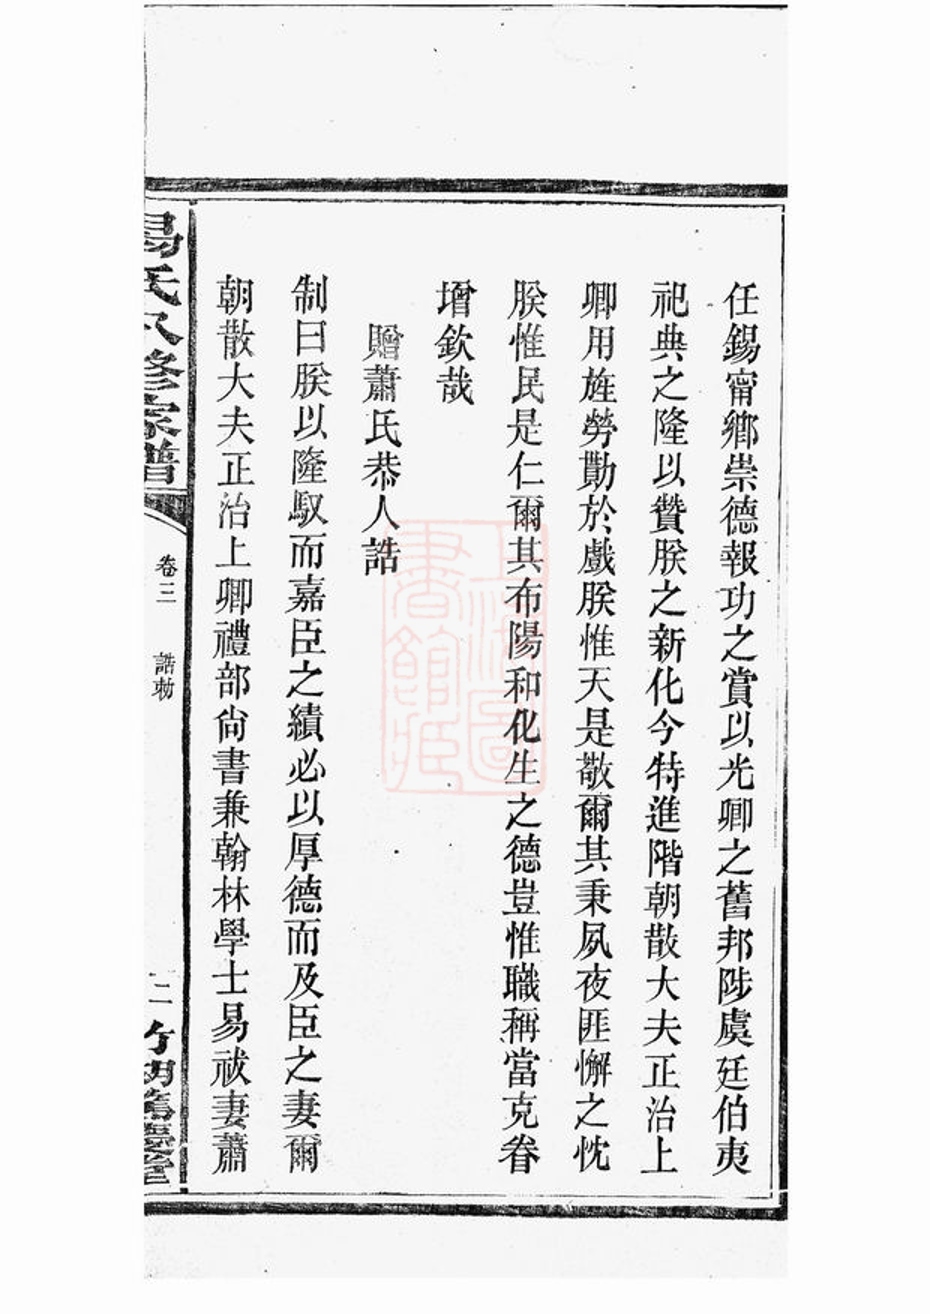 任錫甯鄉崇德報功之賞以光卿之舊邦陟虞廷伯夷
祀典之隆以贊朕之新化今特進階朝散大夫正治上
卿用旌勞勩於戲朕惟天是敬爾其秉夙夜匪懈之忱
朕惟民是仁爾其布陽和化生之德豈惟職稱當克眷
增欽哉
贈蕭氏恭人誥
制曰朕以隆馭而嘉臣之績必以厚德而及臣之妻爾
朝散大夫正治上卿禮部尙書兼翰林學士易祓妻蕭
易氏八修家譜
卷三
誥勅
二
竹湖篤慶堂